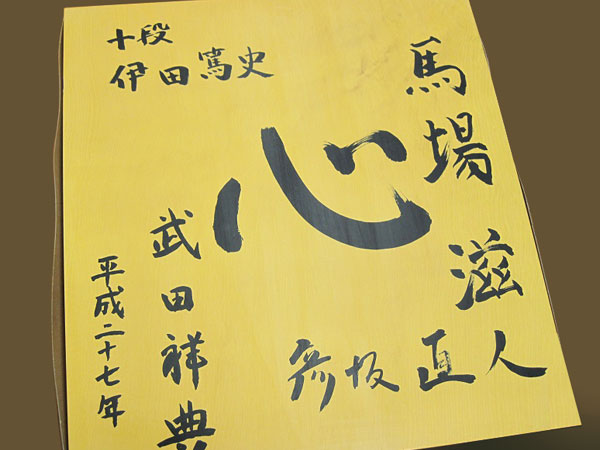 十段
伊田篤史
心
馬場滋
彦坂直人
武田祥典
平成二十七年